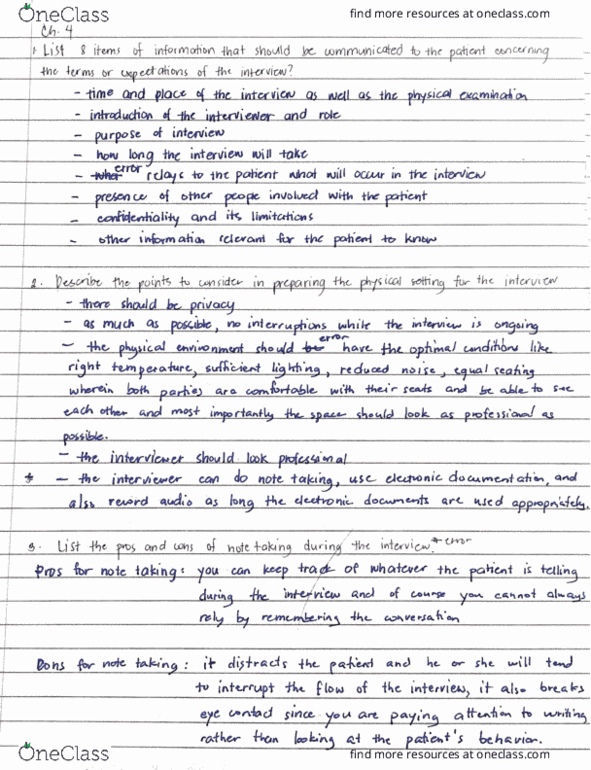 OneClass
find more resources at oneclass.com
Ch. 4
1. List 8 items of information that should be communicated to the patient concerning
the terms or expectations of the interview?
- time and place of the interview as well as the physical examination
- introduction of the interviewer and role
- purpose of interview
- how long the interview will take
- what error relays to the patient what will occur in the interview
- presence of other people involved with the patient
- confidentiality and its limitations
- other information relevant for the patient to know
2. Describe the points to consider in preparing the physical setting for the interview
- there should be privacy
- as much as possible, no interruptions while the interview is ongoing
- the physical environment should be error have the optimal conditions like
right temperature, sufficient lighting, reduced noise, equal seating
wherein both parties are comfortable with their seats and be able to see
each other and most importantly the space should look as professional as
possible.
- the interviewer should look professional
* - the interviewer can do note taking, use electronic documentation, and
also record audio as long the electronic documents are used appropriately.
3. List the pros and cons of note taking during the interview. * error
Pros for note taking: you can keep track of whatever the patient is telling
during the interview and of course you cannot always
rely by remembering the conversation
Cons for note taking: it distracts the patient and he or she will tend
to interrupt the flow of the interview, it also breaks
eye contact since you are paying attention to writing
rather than looking at the patient's behavior.
OneClass
find more resources at oneclass.com